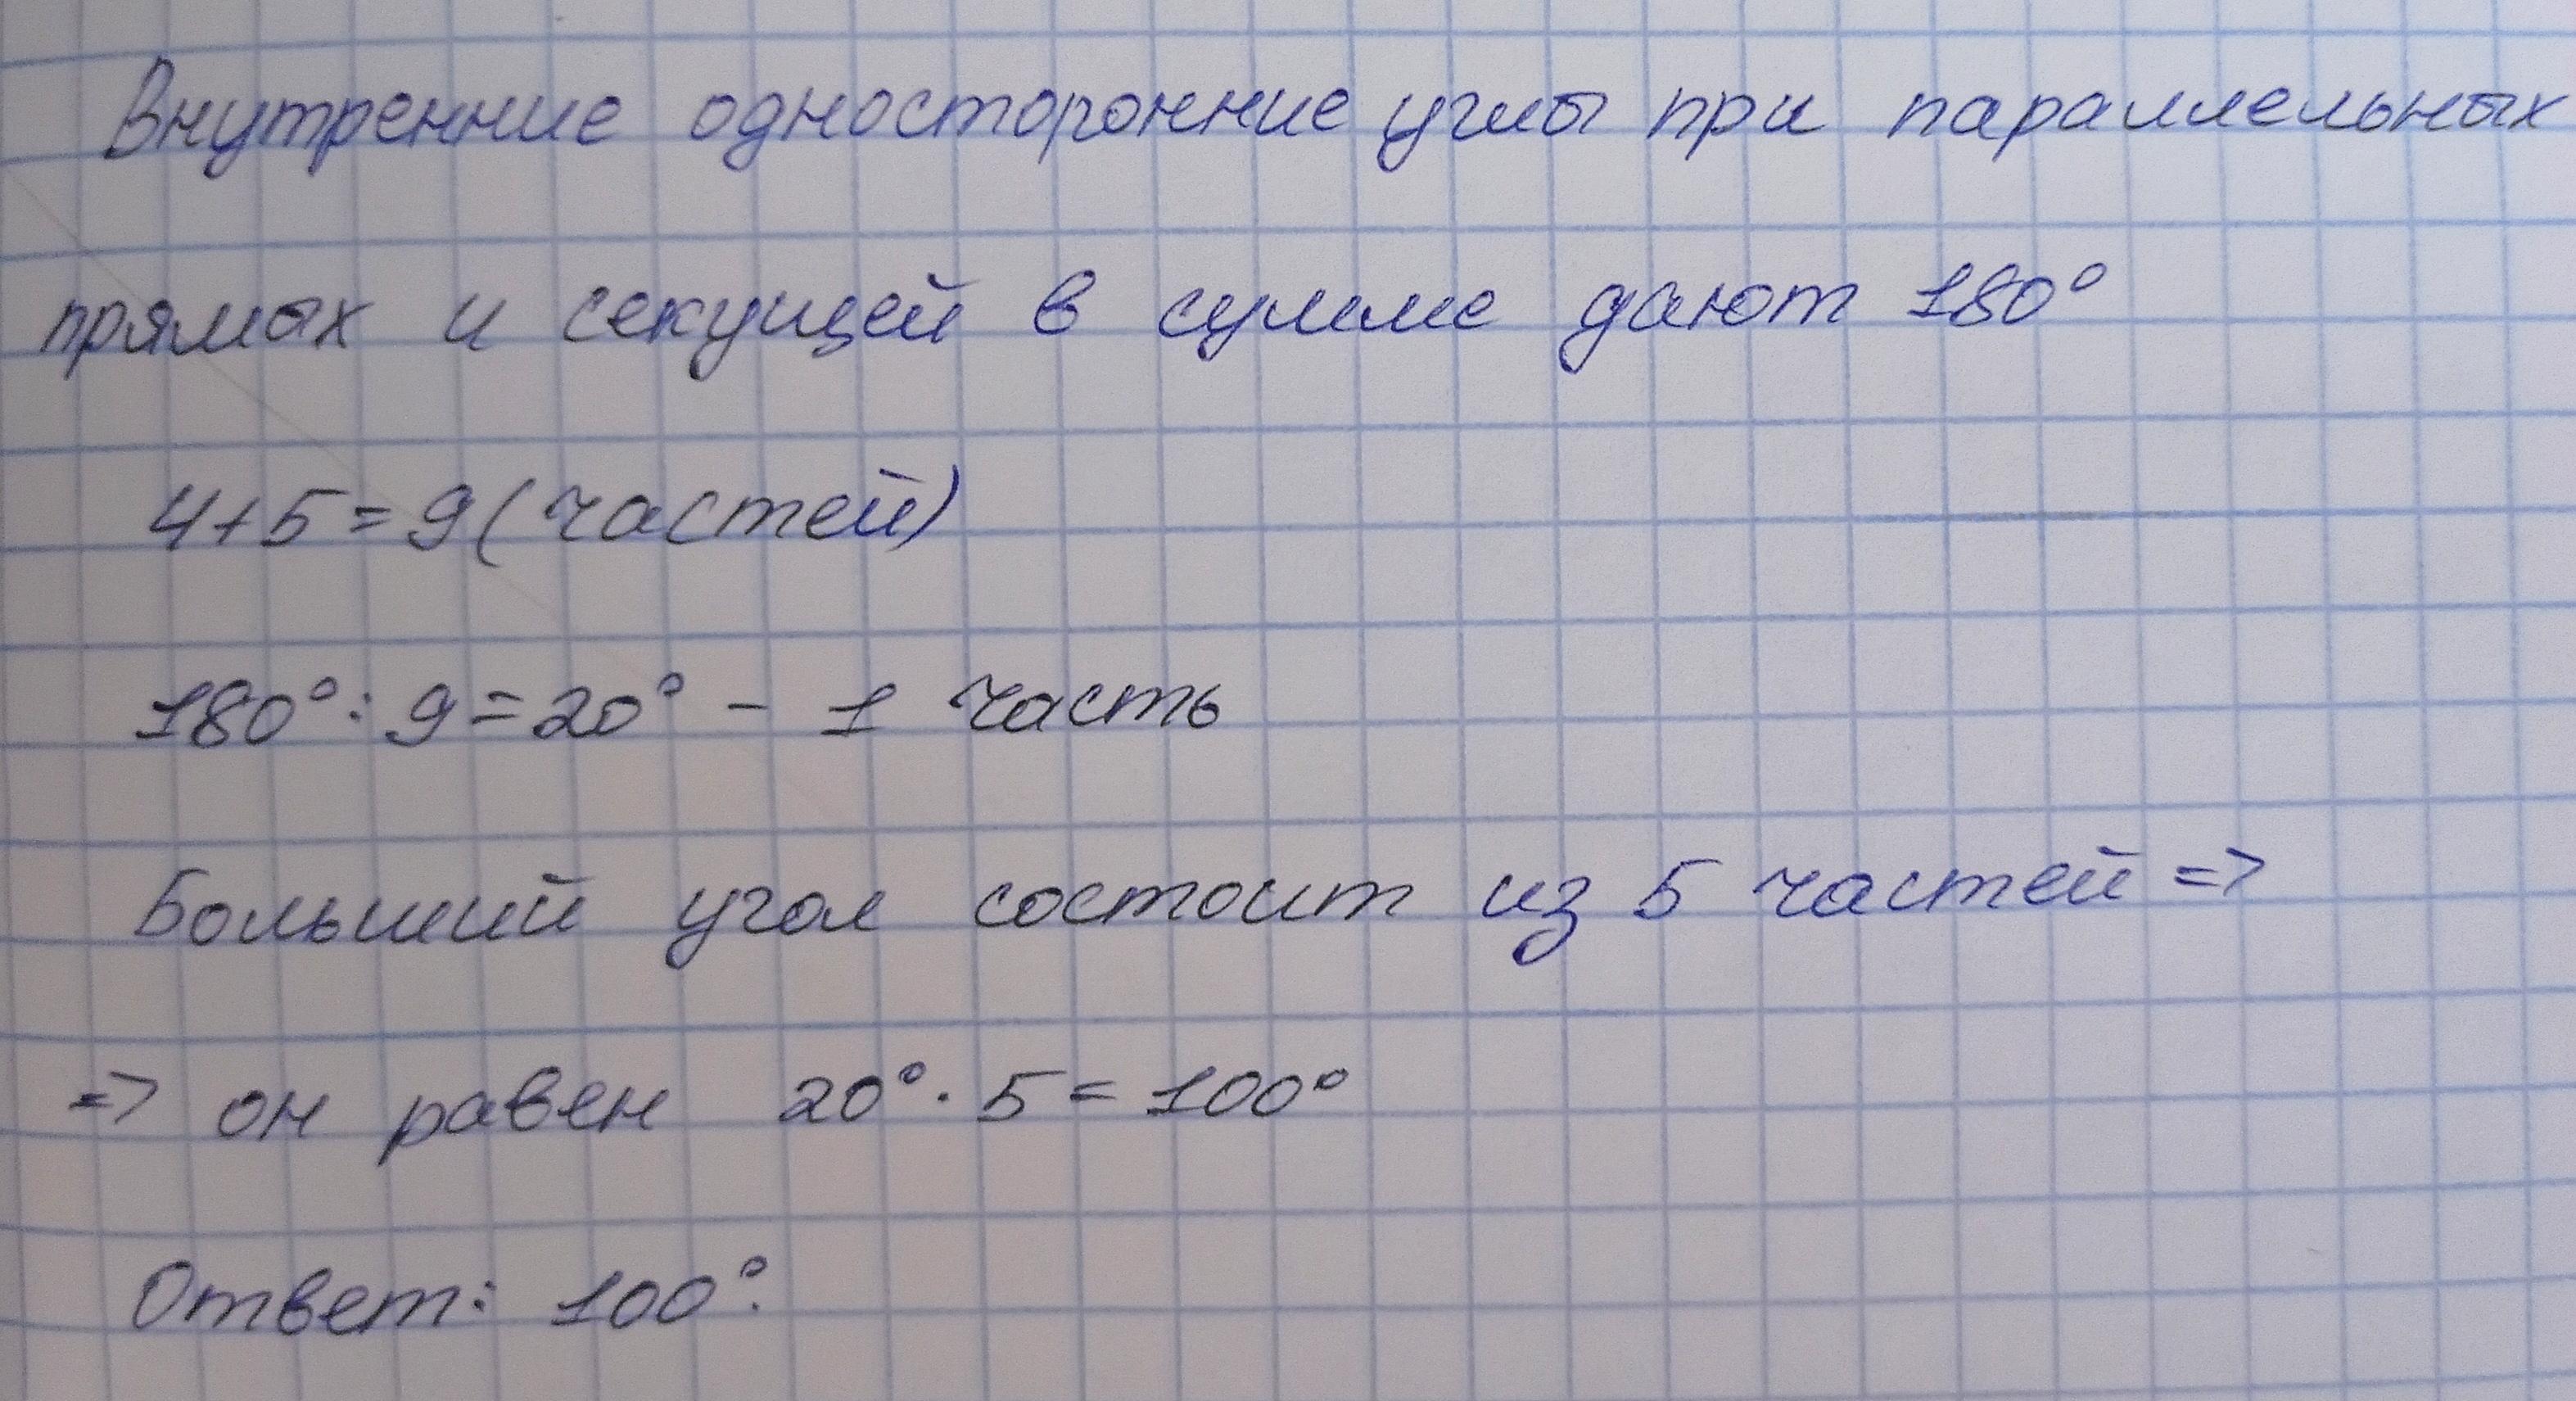 Внутренние односторонние углы при параллельных
прямых и секущей в сумме дают 180°
4+5=9(частей)
180°:9=20° - 1 часть
Больший угол состоит из 5 частей =>
=> он равен 20°·5=100°
Ответ: 100°.